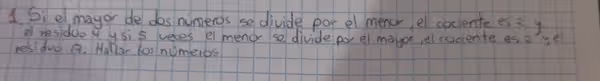 1. Si el mayor de dos numeros se divide por el menor, el cociente es 2 y
el residuo 4 y si 5 veces el menor se divide por el mayor, el cociente es 2 y el
residuo 17. Hallar los números.